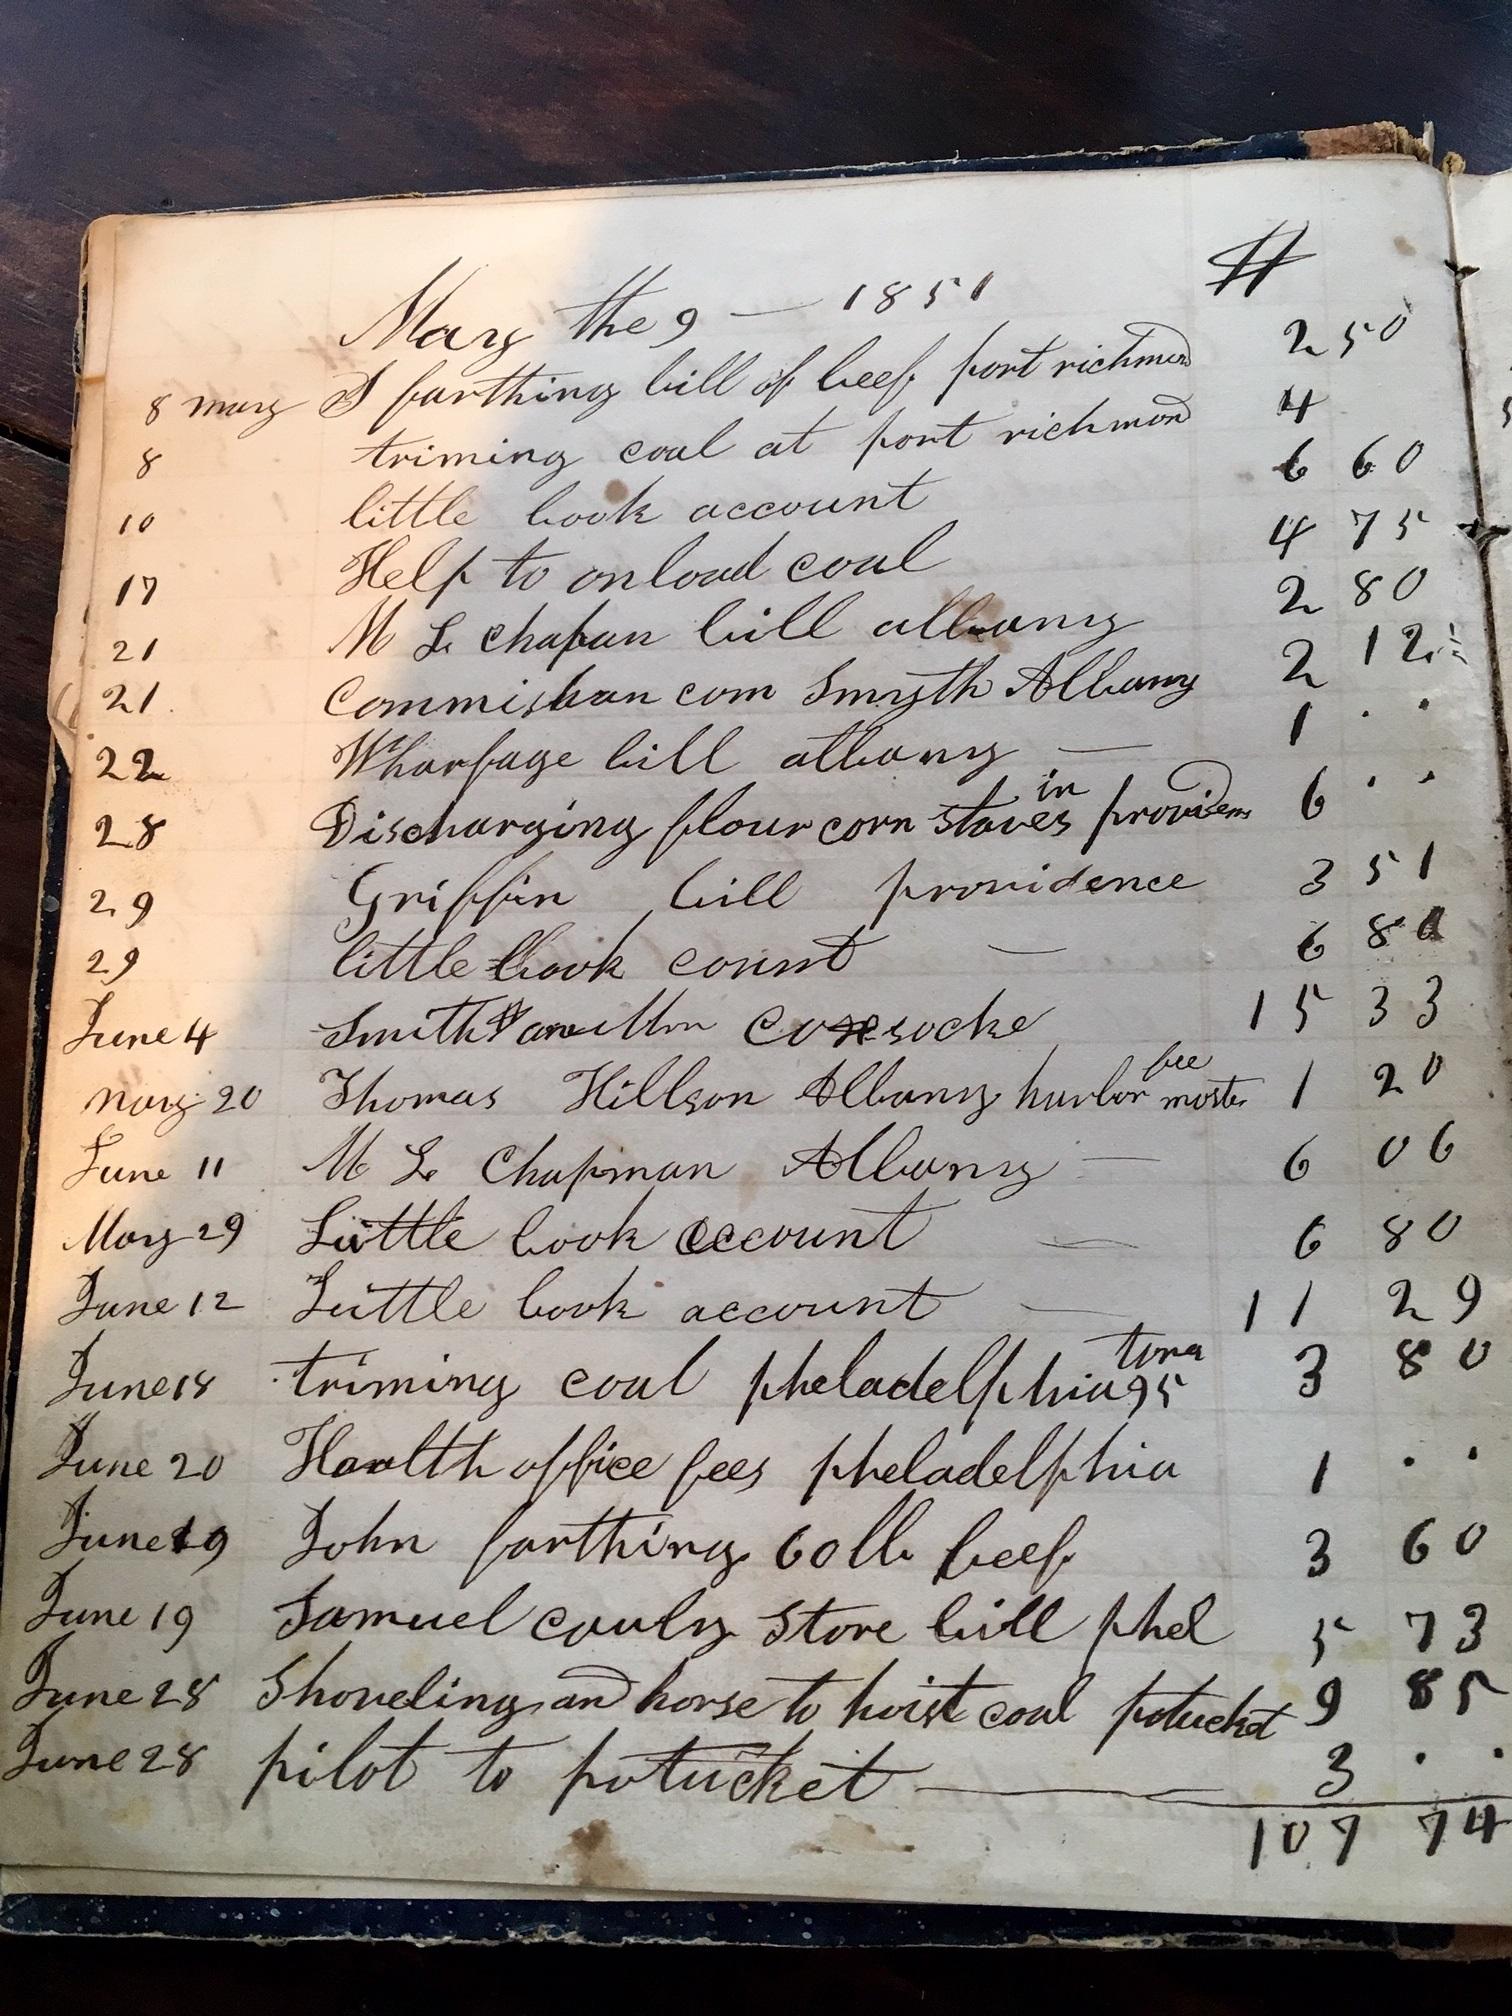 May the 9 — 1851 $
8 may J farthing bill of beef port richmond 2 50
8 triming coal at port richmond 4
10 little book account 6 60
17 Help to onload coal 4 75
21 M L Chapan bill albany 2 80
21 Commishan com Smyth Albany 2 12
22 Wharfage bill albany — 1 . .
28 Discharging flour corn staves in providens 6 . .
29 Griffin bill providence 3 51
29 little book count — 6 80
June 4 Smith 15 33
may 20 Thomas Hillson Albany harbor master fee 1 20
June 11 M L Chapman Albany — 6 06
May 29 Little book account — 6 80
June 12 Little book account — 11 29
June 18 triming coal pheladelphia 95 tons 3 80
June 20 Health office fees pheladelphia 1 . .
June 19 John farthing 60 lb beef 3 60
June 19 Samuel couly store bill phel 5 73
June 28 Shoveling and horse to hoist coal potucket 9 85
June 28 pilot to potucket — 3 . .
107 74